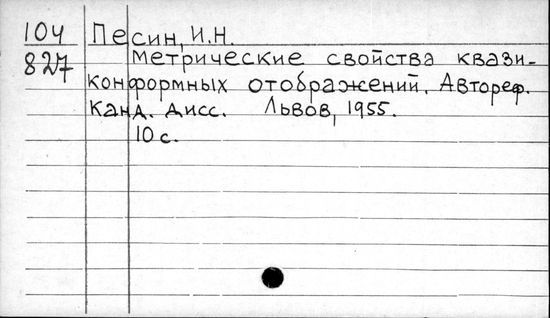 104 Песин, И.Н.
827 Метрические свойства квази-
конформных отображений. Автореф.
Канд. дисс. Львов, 1955.
10 с.